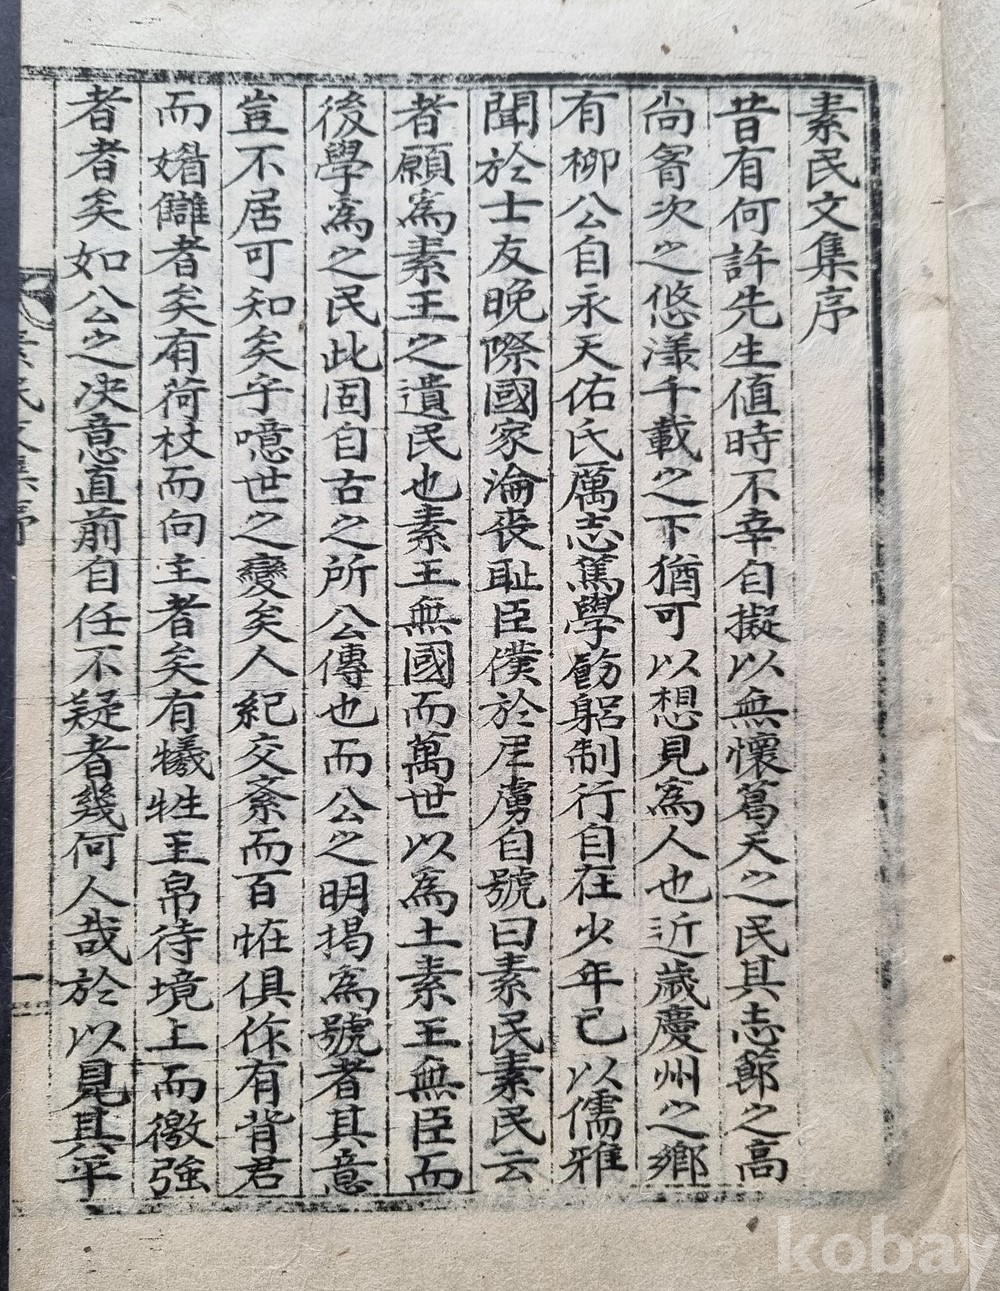 素民文集序
昔有何許先生値時不幸自擬以無懷葛天之民其志節之高
尚寄次之悠漾千載之下猶可以想見爲人也近歲慶州之鄕
有柳公自永天佑氏厲志篤學飭躬制行自在少年已以儒雅
聞於士友晩際國家淪喪耻臣僕於虜自號曰素民素民云
者願爲素王之遺民也素王無國而萬世以爲土素王無臣而
後學爲之民此固自古之所公傳也而公之明揭爲號者其意
豈不居可知矣乎噫世之變矣人紀交紊而百恠俱作有背君
而媚讎者矣有荷杖而向主者矣有犧牲圭帛待境上而徼強
者者矣如公之决意直前自任不疑者幾何人哉於以見其平
素民文集序
一
kobay